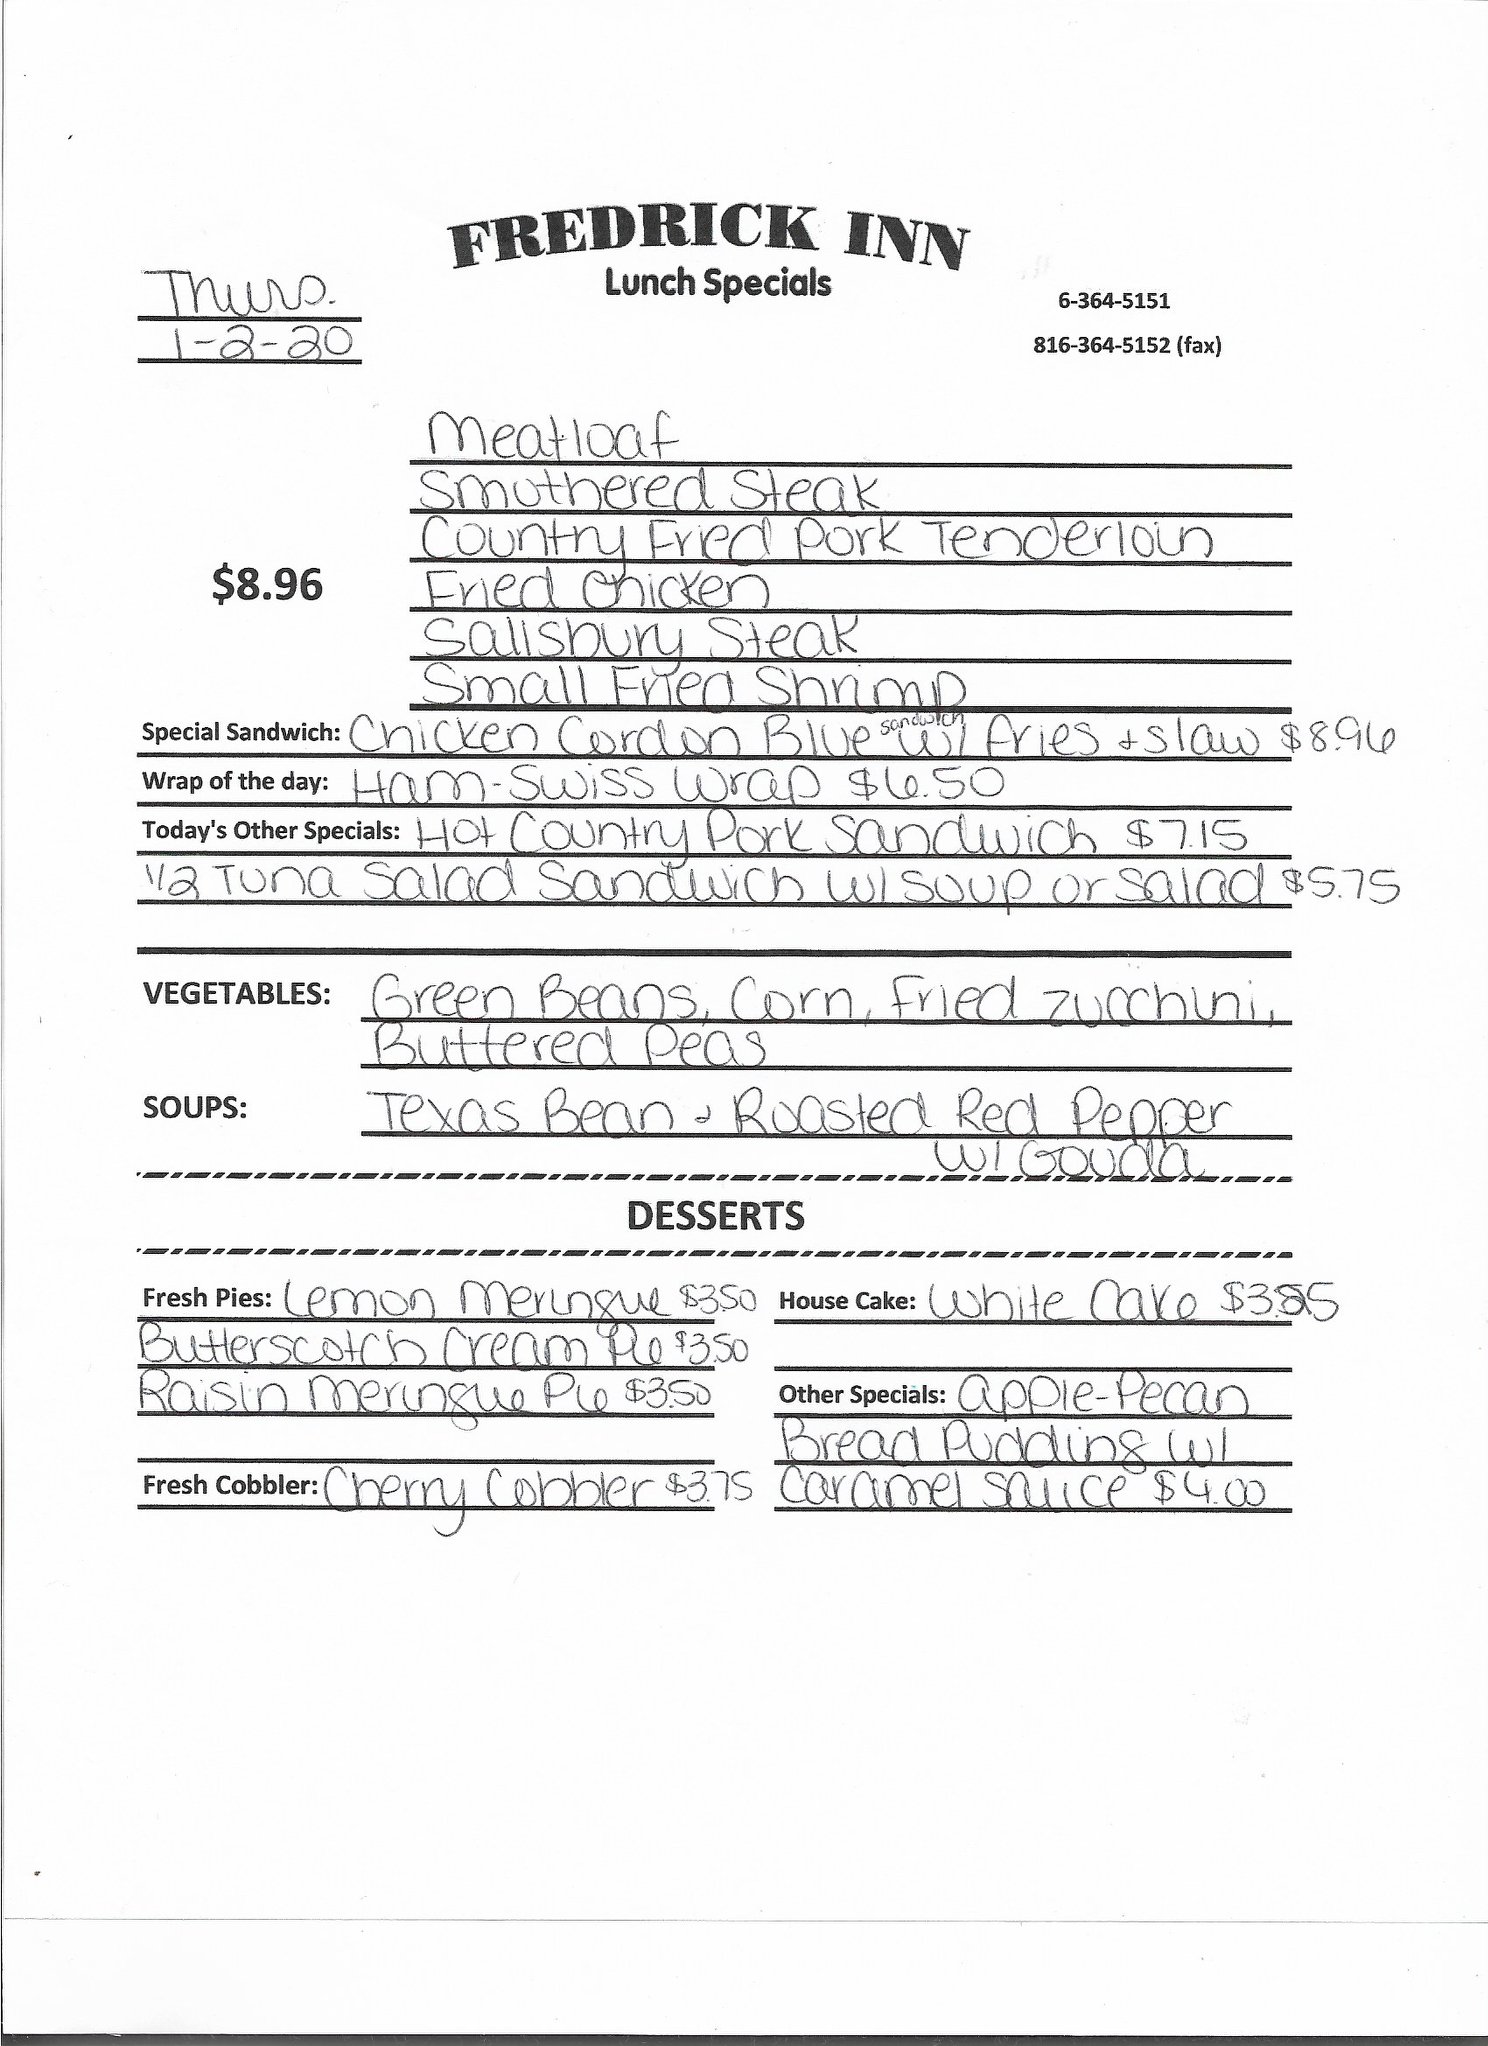 FREDRICK INN
Lunch Specials
Thurs.
1-2-20
6-364-5151
816-364-5152 (fax)
Meatloaf
Smothered Steak
Country Fried Pork Tenderloin
$8.96
Fried Chicken
Salisbury Steak
Small Fried Shrimp
Special Sandwich: Chicken Cordon Blue sandwich w/ fries + slaw $8.96
Wrap of the day: Ham-Swiss Wrap $6.50
Today's Other Specials: Hot Country Pork Sandwich $7.15
1/2 Tuna Salad Sandwich w/ soup or salad $5.75
VEGETABLES: Green Beans, Corn, Fried Zucchini,
Buttered Peas
SOUPS: Texas Bean + Roasted Red Pepper
w/ Gouda
DESSERTS
Fresh Pies: Lemon Meringue $3.50
Butterscotch Cream Pie $3.50
Raisin Meringue Pie $3.50
Fresh Cobbler: Cherry Cobbler $3.75
House Cake: White Cake
Other Specials: Apple-Pecan
Bread Pudding w/
Caramel Sauce $4.00